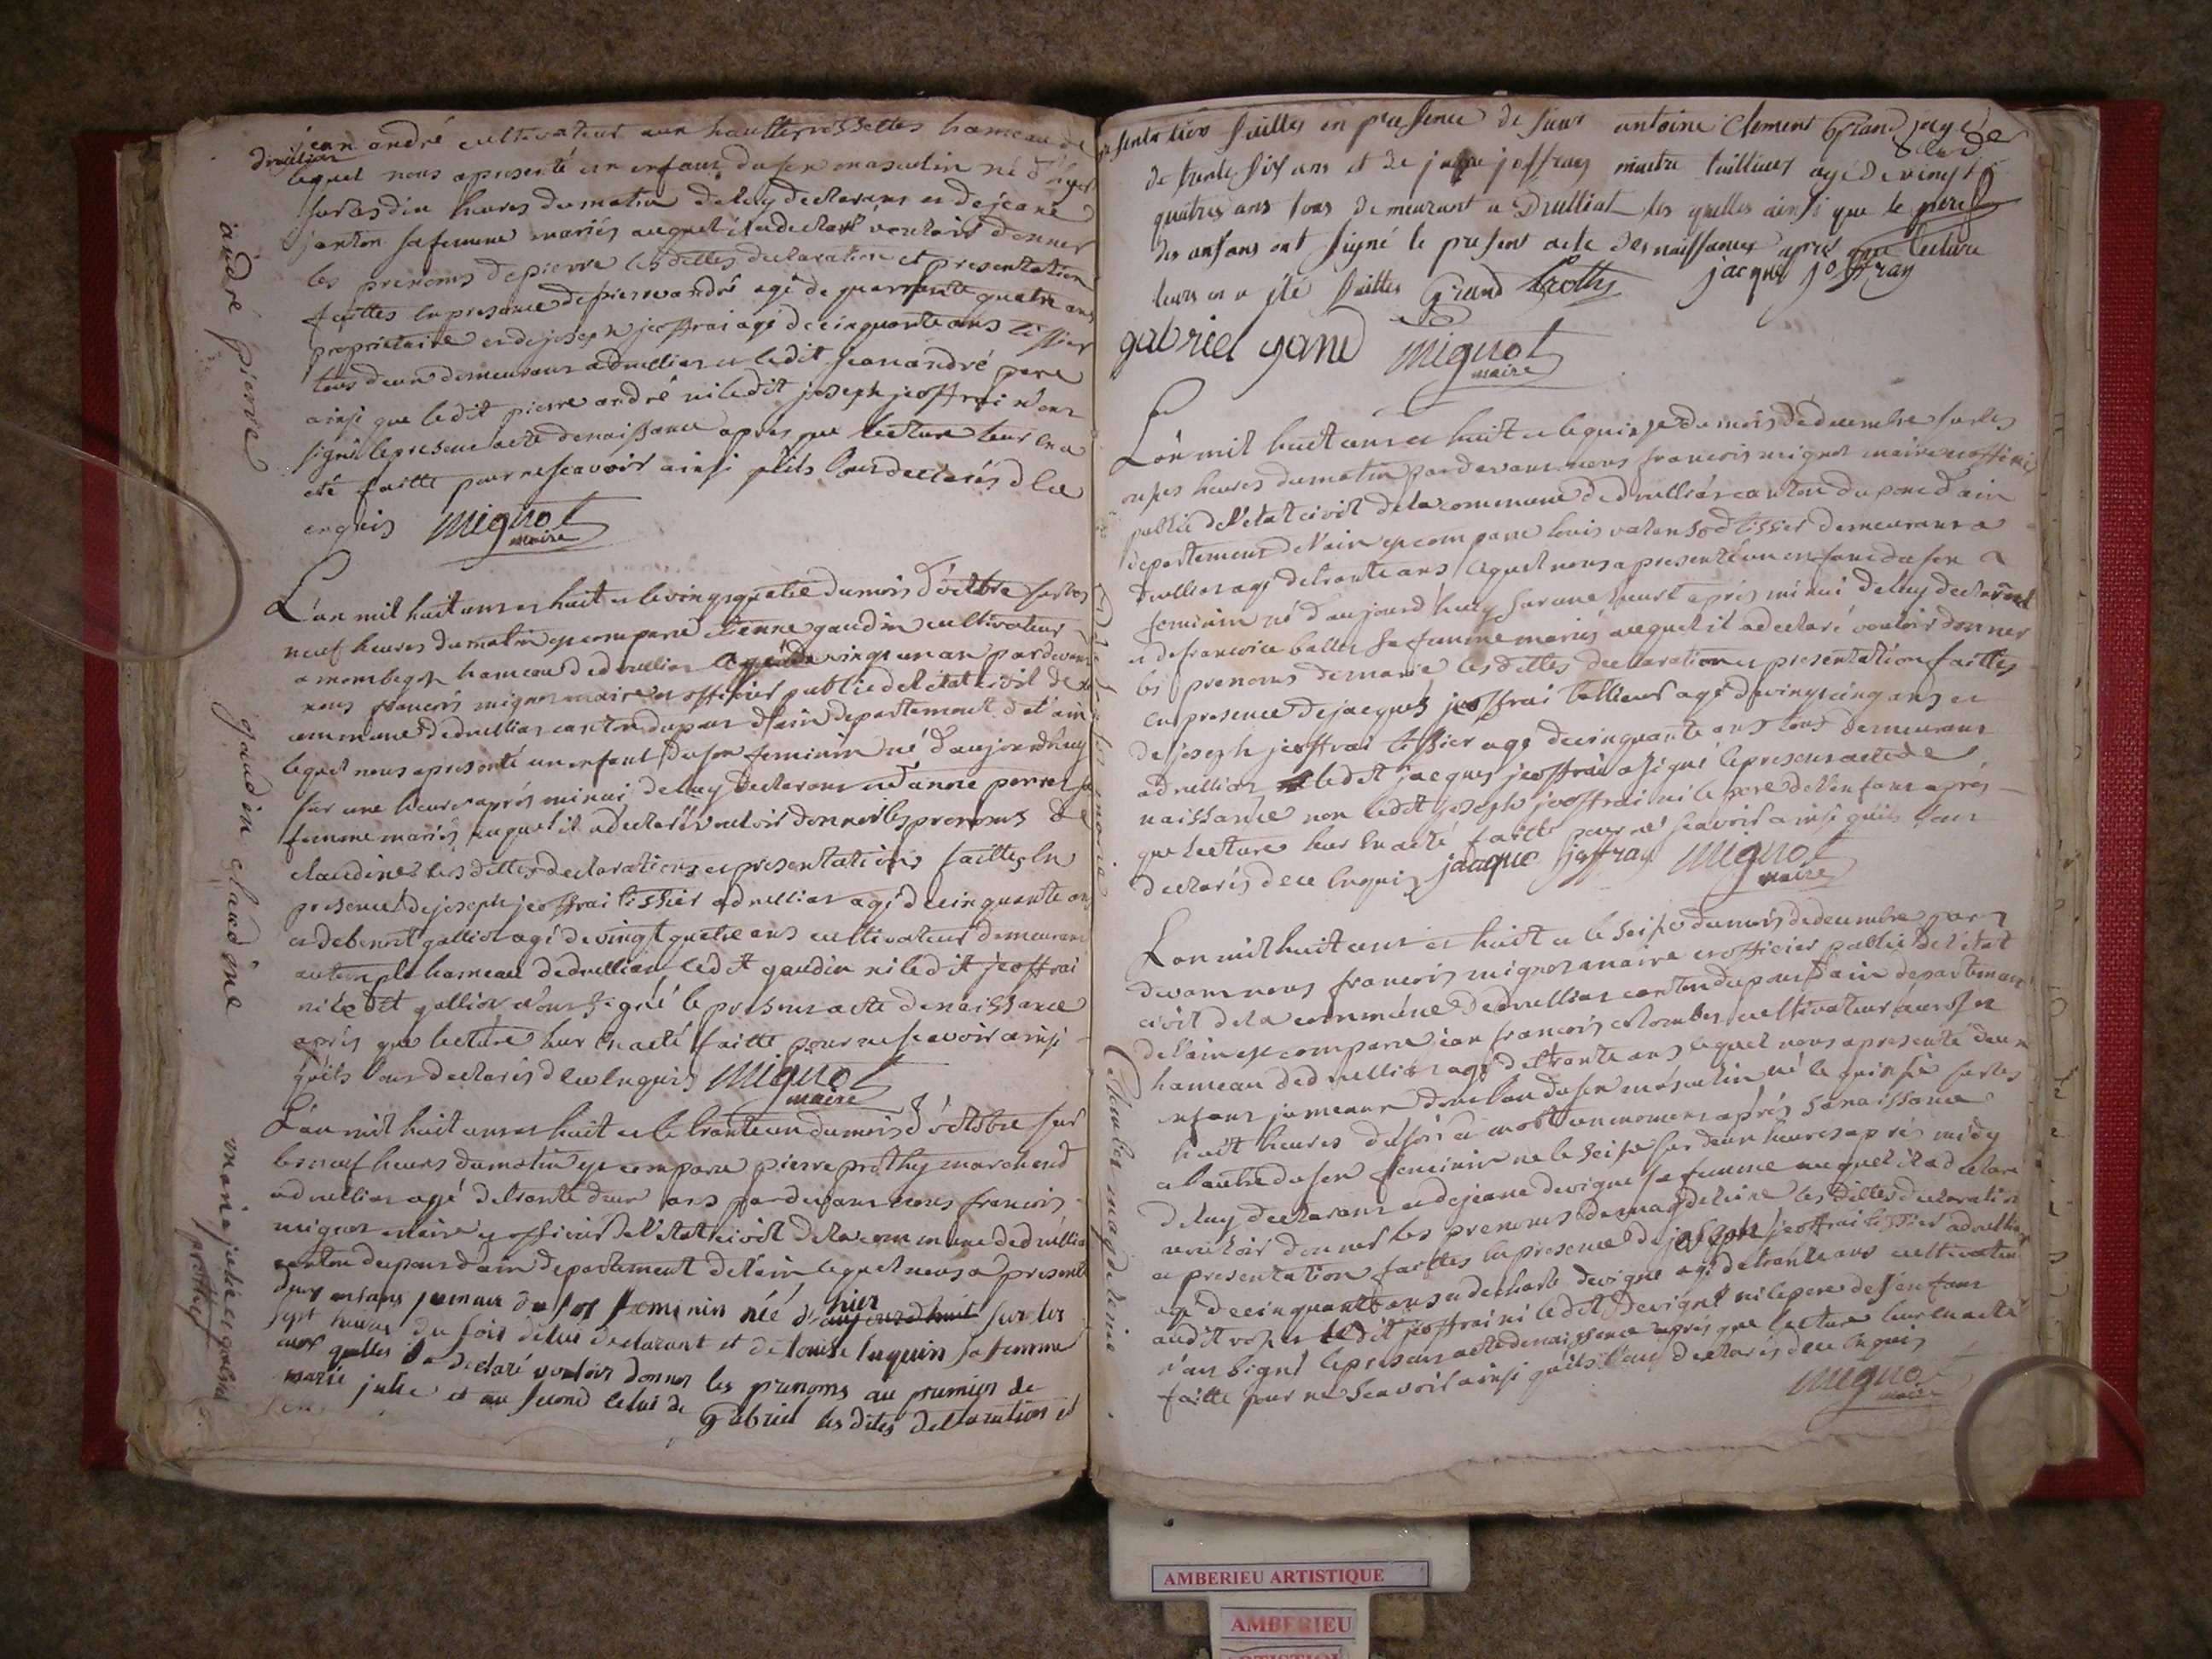 jean andré cultivateur aux hautterossettes hameau de
druillias
lequel nous apresenté un enfant du sexe masculin né d'hyer
sur les dix heures du matin de luy declarant et de jeane
janton sa femme mariés auquel il a declaré vouloir donner
les prenoms de pierre lesdittes declaration et presentation
faittes en presence de pierre andré agé de quarrante quatre ans
proprietaire et de joseph jeoffrai agé de cinquante ans tissier
tous deux demeurans a druillias et ledit jean andré pere
ainsi que ledit pierre andré ni ledit joseph jeoffrai n'ont
signé le present acte de naissance apres que lecture leur en a
eté faitte pour ne scavoir ainsi qu'ils l'ont declarés d ce
enquis Mignot
maire
andré pierre
L'an mil huit cent et huit et le vingt quatre du mois d'octobre sur les
neuf heures du matin est comparu etienne gaudin cultivateur
a hameau de druillias agé de vingt un an pardevant
nous francois mignot maire et officier public de l'etat civil de la
commune de druillias canton du pont d'ain departement de l'ain
lequel nous a presenté un enfant du sexe feminin né d'aujourdhuy
sur une heure aprés minuit de luy declarant et d'anne perret sa
femme mariés auquel il a declaré vouloir donner les prenoms de
claudine lesdittes declarations et presentation faittes en
presence de joseph jeoffrai tissier a druillias agé de cinquante ans
et de benoit gallion agé de vingt quatre ans cultivateur demeurant
au temple hameau de druillias ledit gaudin ni ledit jeoffrai
ni ledit gallion n'ont signé le present acte de naissance
aprés que lecture leur en a eté faitte pour ne scavoir ainsi
qu'ils l'ont declarés d ce enquis Mignot
maire
gaudin claudine
L'an mil huit cent et huit et le trante un du mois d'octobre sur
les neuf heures du matin est comparu pierre prothy marchand
a druillias agé de trante deux ans pardevant nous francois
mignot maire et officier de l'etat civil de la commune de druillias
canton du pont d'ain departement de l'ain lequel nous a presenté
deux enfans jumeaux du sexe feminin née d'hier aujourd'huit sur les
sept heures du soir de lui declarant et de louise luquin sa femme
aux quelles il a declaré vouloir donner les prenoms au premier de
marie julie et au second celui de gabriel les dites declaration et
marie julie et gabriel
prothy
presentation faittes en presence de sieur antoine Clement Grand agé de
de trente six ans et de jaque jeoffray maitre taillieur agé de vingt
quatres ans tous demeurant a Druilliat les quelles ainsi que le pere
des anfans ont signé le present acte des naissances apres que lecture
leurs en a été faittes Grand Prothy jacque joffray
gabriel gand Mignot
maire
L'an mil huit cent et huit et le quinze du mois de decembre sur les
onzes heures du matin pardevant nous francois mignot maire et officier
public de l'etat civil de la commune de druillias canton du pont d'ain
departement de l'ain est comparu louis tissier demeurant a
druillias agé de trante ans lequel nous a presenté un enfant du sexe
feminin né d'aujourd'huy sur une heure aprés minuit de luy declarant
et de francoise ballet sa femme mariés auquel il a declaré vouloir donner
les prenoms de marie lesdittes declaration et presentation faittes
en presence de jacques jeoffrai tallieur agé de vingt cinq ans et
de joseph jeoffrai tissier agé de cinquante ans tous demeurant
a druillias ledit jacques jeoffrai a signé le present acte de
naissance non ledit joseph jeoffrai ni le pere de l'enfant aprés
que lecture leur en a eté faitte pour ne scavoir ainsi qu'ils l'ont
declarés d ce enquis jacque joffray Mignot
maire
marie
L'an mil huit cent et huit et le seize du mois de decembre par
devant nous francois mignot maire et officier public de l'etat
civil de la commune de druillias canton du pont d'ain departemant
de l'ain est comparu jean francois colombet cultivateur
hameau de druillias agé de trante ans lequel nous a presenté deux
enfans jumeaux dont l'un du sexe masculin né le quinze sur les
huit heures du soir et mort un moment aprés sa naissance
et l'autre du sexe feminin né le seize sur deux heures aprés midy
de luy declarant et de jeane devigne sa femme auquel il a declaré
vouloir donner les prenoms de magdeleine lesdittes declaration
et presentation faittes en presence de joseph jeoffrai tissier a druillias
agé de cinquante ans et de charle devigne agé de trante ans cultivateur
audit ledit jeoffrai ni ledit devigne ni le pere de l'enfant
n'ont signé le present acte de naissance aprés que lecture leur en a eté
faitte pour ne scavoir ainsi qu'ils l'ont declarés d ce enquis
Mignot
maire
Colombet magdeleine
AMBERIEU ARTISTIQUE
AMBERIEU
ARTISTIQUE